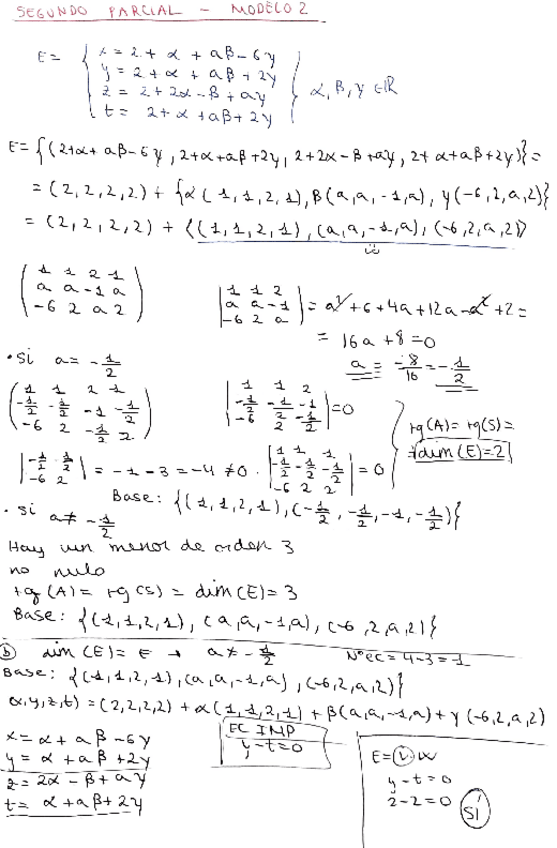 SEGUNDO PARCIAL - MODELO 2
E = { x = 2 + α + aβ - 6γ
y = 2 + α + aβ + 2γ
z = 2 + 2α - β + aγ
t = 2 + α + aβ + 2γ } α, β, γ ∈ ℝ
E = {(2+α+aβ-6γ, 2+α+aβ+2γ, 2+2α-β+aγ, 2+α+aβ+2γ)} =
= (2,2,2,2) + {α(1,1,2,1), β(a,a,-1,a), γ(-6,2,a,2)}
= (2,2,2,2) + <(1,1,2,1), (a,a,-1,a), (-6,2,a,2)>
(1 1 2 1
a a -1 a
-6 2 a 2)
|1 1 2
a a -1
-6 2 a| = a² + 6 + 4a + 12a - a² + 2 =
= 16a + 8 = 0
a = -8/16 = -1/2
• Si a = -1/2
(1 1 2 1
-1/2 -1/2 -1 -1/2
-6 2 -1/2 2)
|1 1 2
-1/2 -1/2 -1
-6 2 -1/2| = 0
|-1/2 -1/2
-6 2| = -1 - 3 = -4 ≠ 0 .
|1 1 1
-1/2 -1/2 -1/2
-6 2 2| = 0
rg(A) = rg(S) =
= dim(E) = 2
Base: {(1,1,2,1), (-1/2, -1/2, -1, -1/2)}
• Si a ≠ -1/2
Hay un menor de orden 3
no nulo
rg(A) = rg(S) = dim(E) = 3
Base: {(1,1,2,1), (a,a,-1,a), (-6,2,a,2)}
b) dim(E) = E → a ≠ -1/2 Nº ec = 4-3 = 1
Base: {(1,1,2,1), (a,a,-1,a), (-6,2,a,2)}
(x,y,z,t) = (2,2,2,2) + α(1,1,2,1) + β(a,a,-1,a) + γ(-6,2,a,2)
x = α + aβ - 6γ
y = α + aβ + 2γ
z = 2α - β + aγ
t = α + aβ + 2γ
EC IMP
y - t = 0
E = v + W
y - t = 0
2 - 2 = 0 SÍ